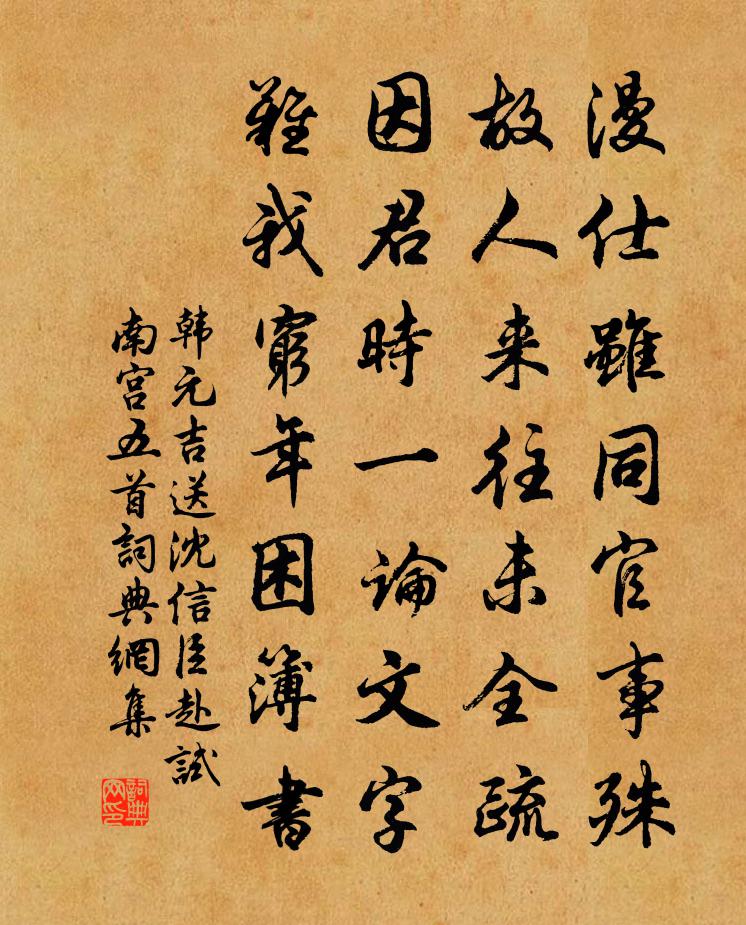 漫仕雖同官事殊
故人来往未全疏
因君時一論文字
難我窮年困簿書
韩元吉送沈信臣赴試
南宫五首詞典網集
詞典
网印